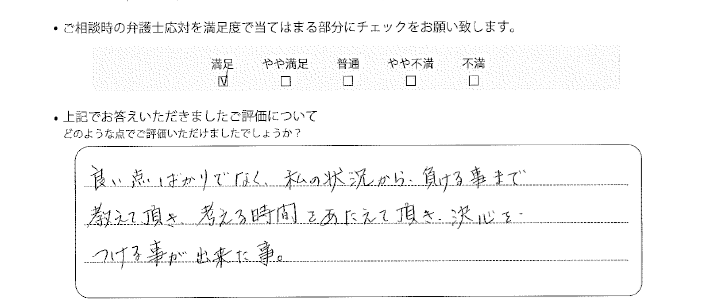 ・ご相談時の弁護士応対を満足度で当てはまる部分にチェックをお願い致します。
満足 やや満足 普通 やや不満 不満
☑ □ □ □ □
・上記でお答えいただきましたご評価について
どのような点でご評価いただけましたでしょうか？
良い点ばかりでなく、私の状況から、負ける事まで
教えて頂き、考える時間をあたえて頂き、決心を
つける事が出来た事。